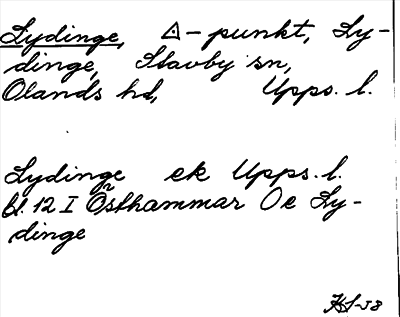 Lydinge, △-punkt, Ly-
dinge, Stavby sn,
Olands hd, Upps. l.
Lydinge ek Upps. l.
bl. 12 I Östhammar Oe Ly-
dinge